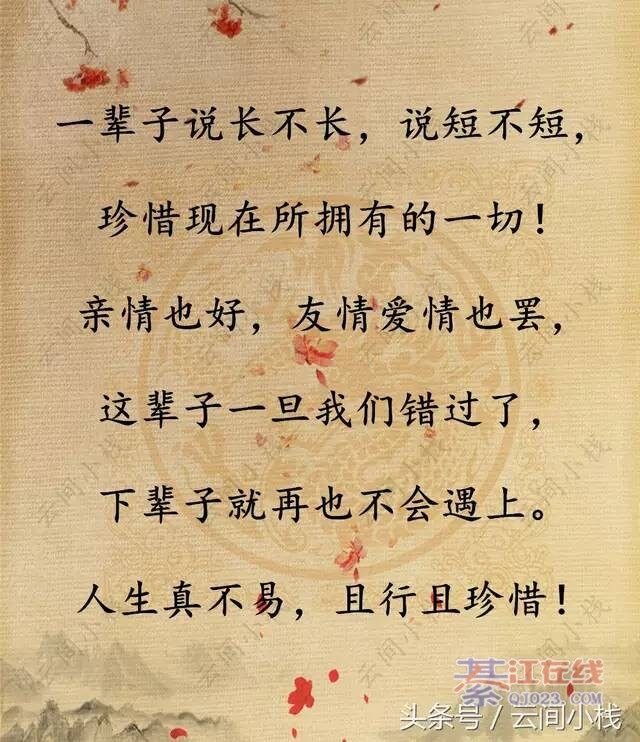 一辈子说长不长，说短不短，
珍惜现在所拥有的一切！
亲情也好，友情爱情也罢，
这辈子一旦我们错过了，
下辈子就再也不会遇上。
人生真不易，且行且珍惜！
綦江在线
QJ023.com
头条号 / 云间小栈